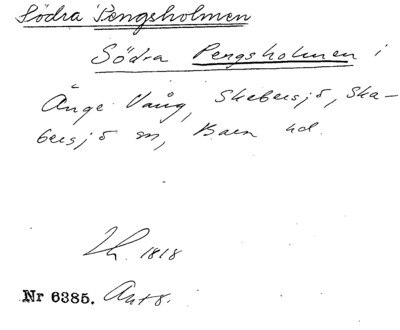 Södra Pengsholmen
Södra Pengsholmen i
Änge Vång, Skabersjö, Ska-
bersjö sn, Bara hd.
Lh. 1818
Nr 6385. Ant 8.